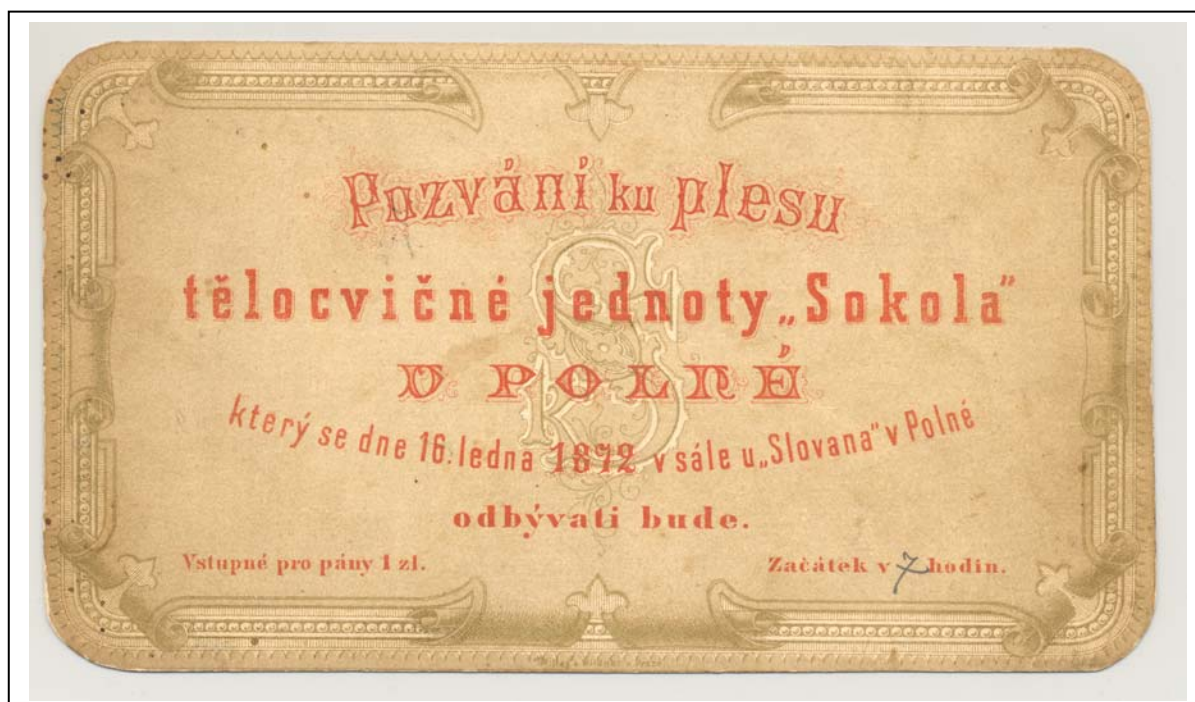 Pozvání ku plesu
tělocvičné jednoty „Sokola“
V POLNÉ
který se dne 16. ledna 1872 v sále u „Slovana“ v Polné
odbývati bude.
Vstupné pro pány 1 zl.
Začátek v 7 hodin.